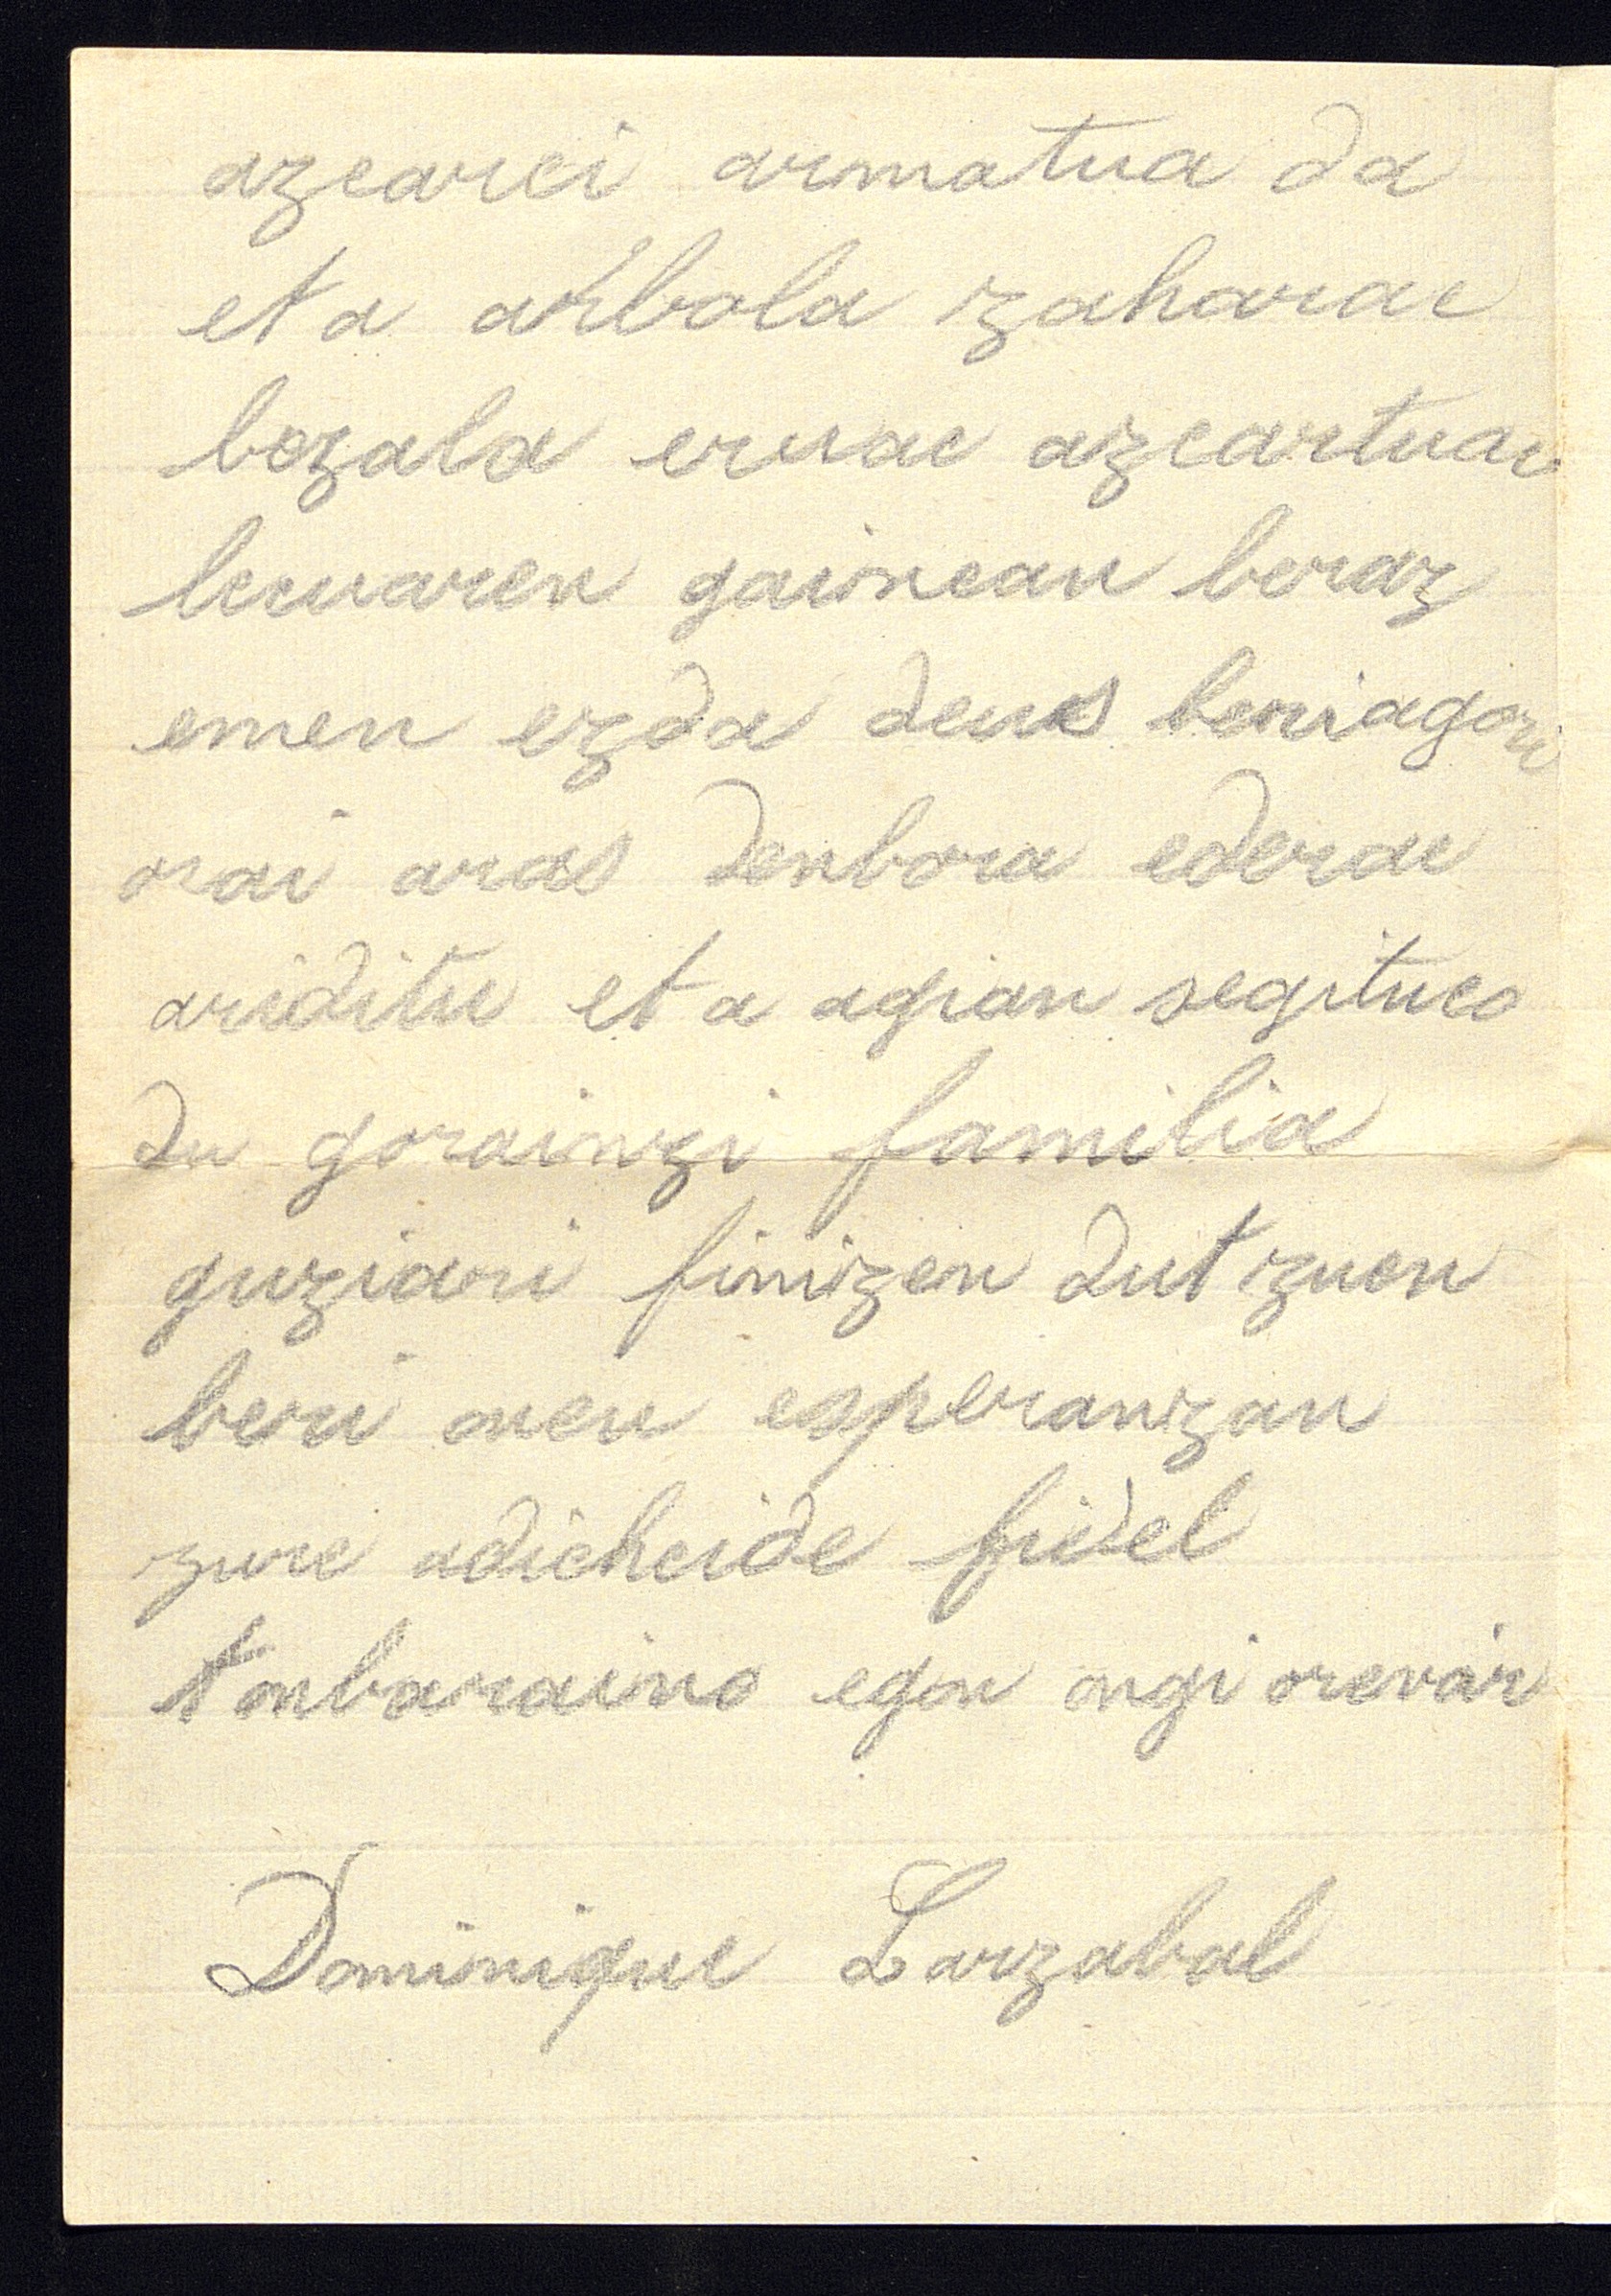 azcarci armatua da
eta arbola zaharac
bezala errac azcartuac
lecuaren gainean beraz
emen ezda deus beriagori
orai aras denbora ederac
ariditu eta agian segituco
du gorainzi familia
guziari finizen dut zuen
beri onen esperanzan
zure adicheide fidel
tonbaraino egon ongi orevár
Dominique Larzabal